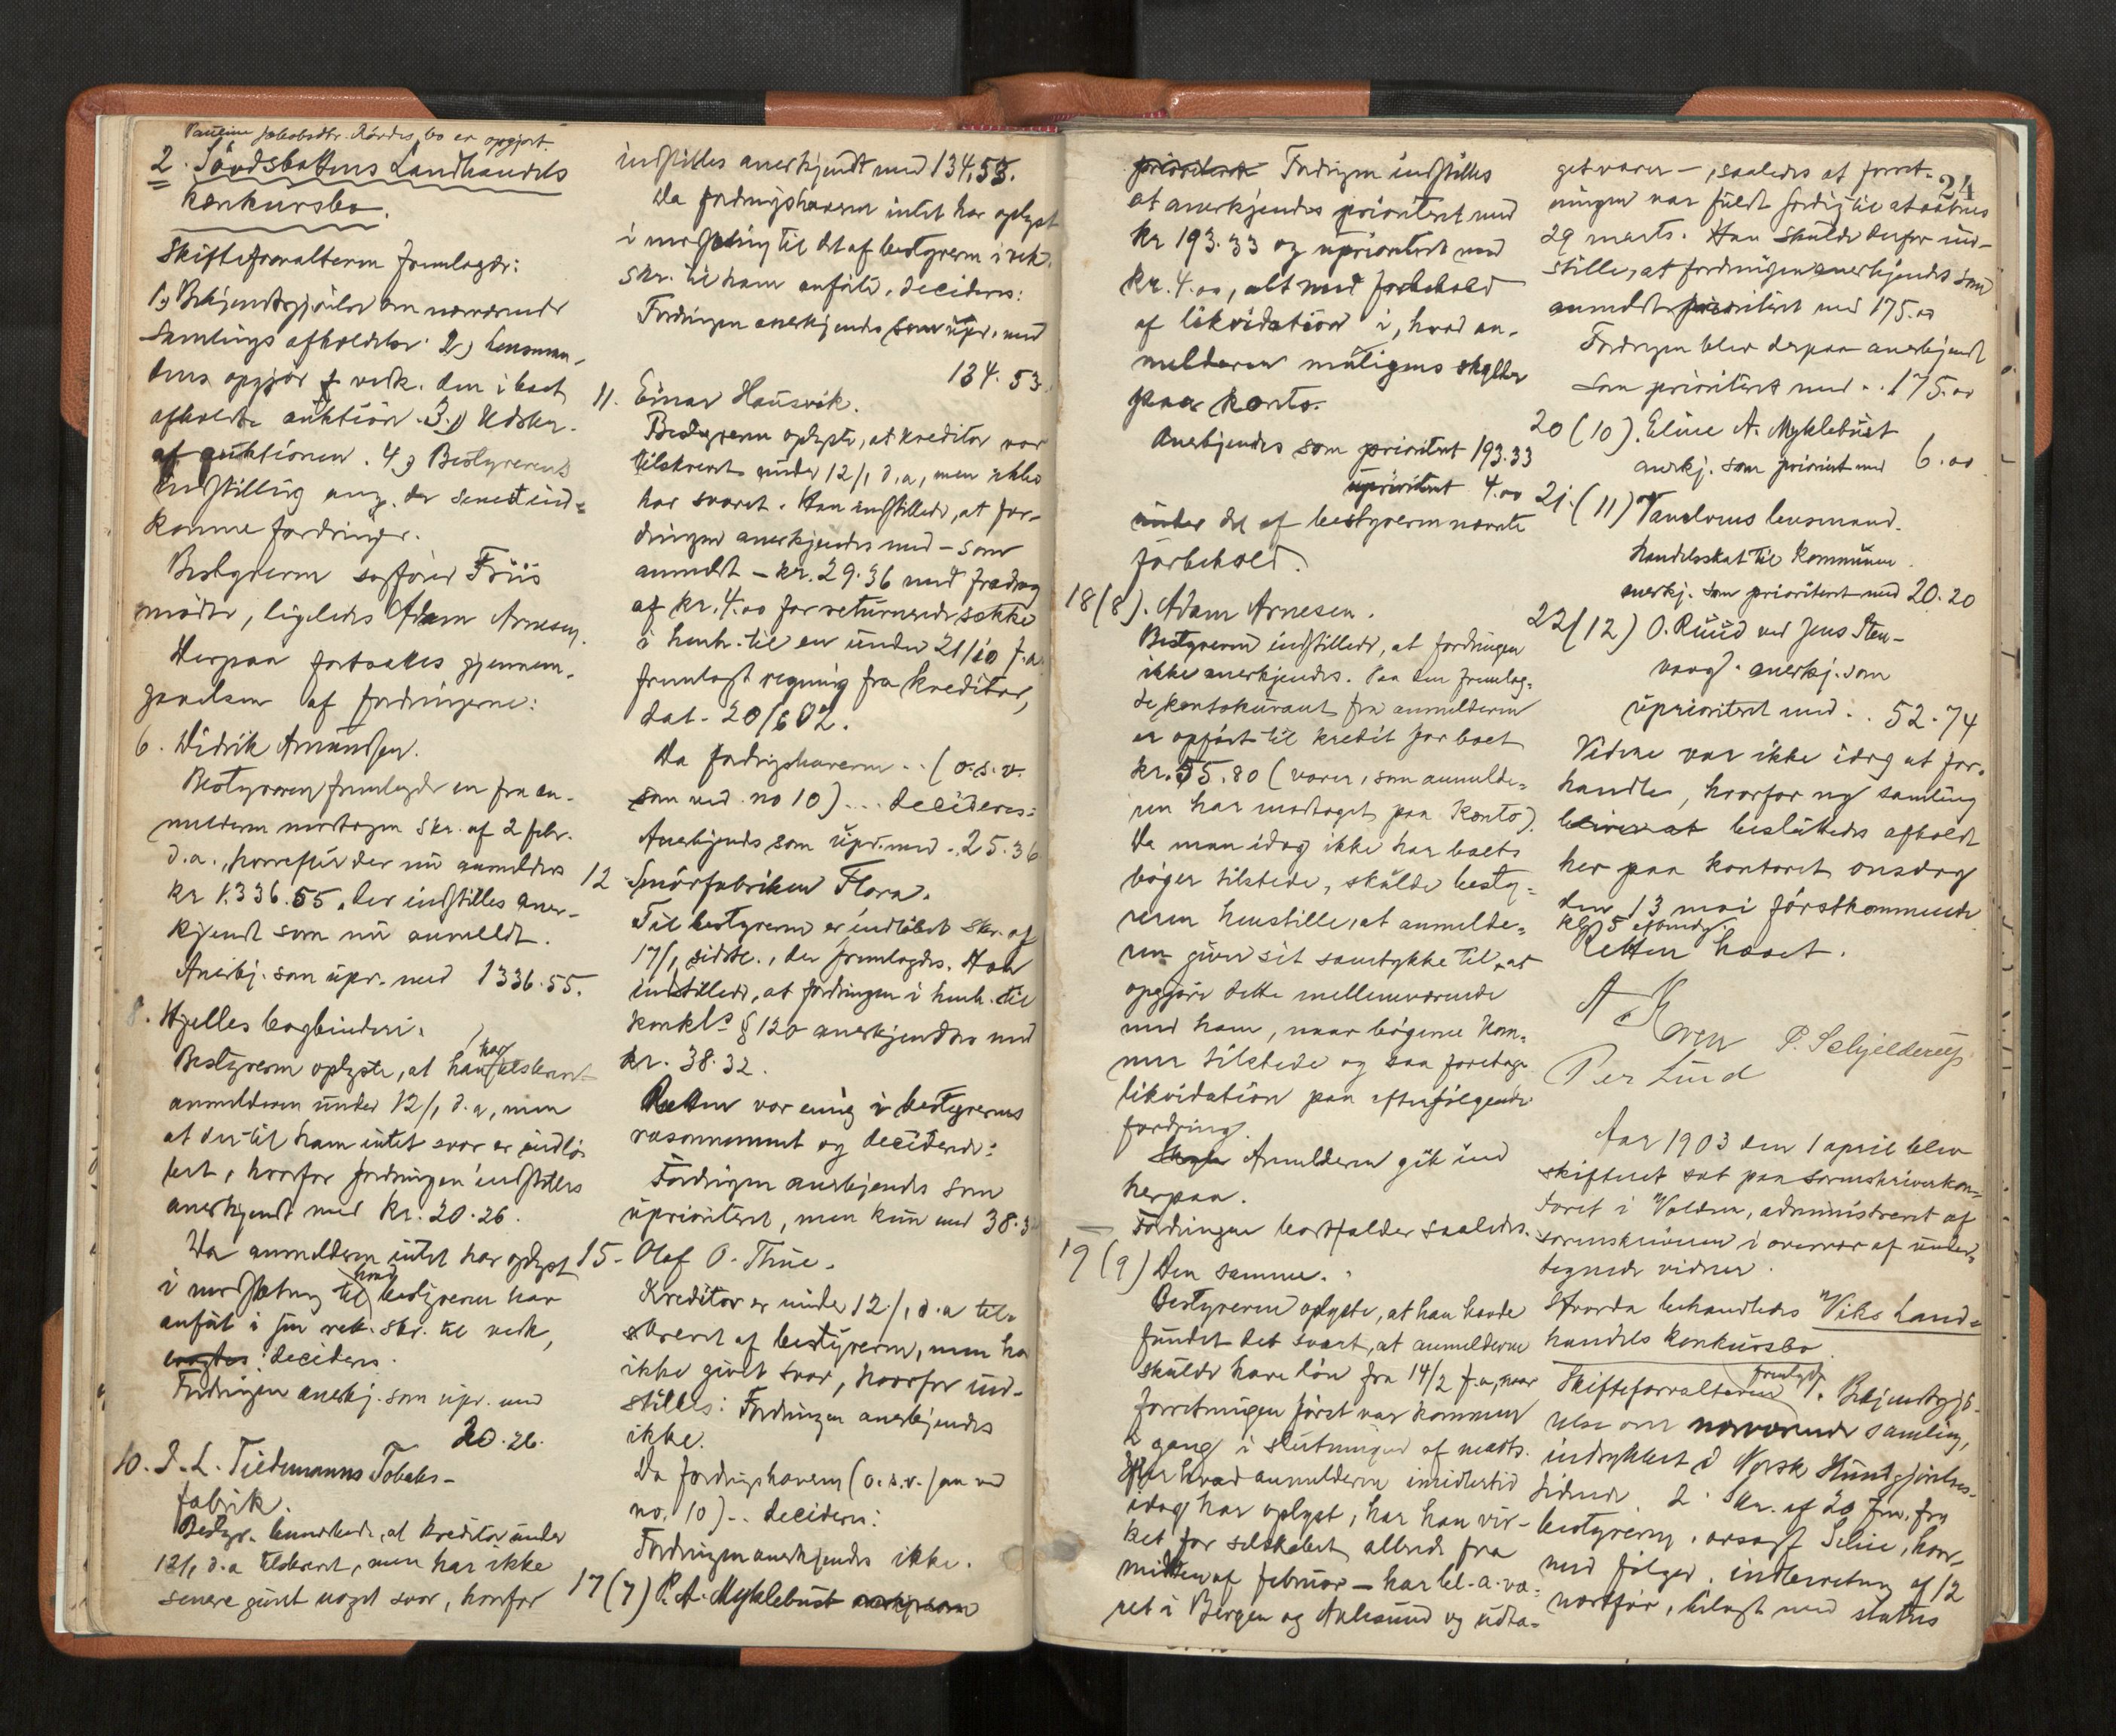 Pauline Jakobsdtr. Aardes bo er opgjort.
2. Sövdsbottens Landhandels
konkursbo.
Skifteforvalteren fremlagde:
1) Bekjendtgjörelse om nærværende
samlings afholdelse. 2) Lensman-
dens opgjör vedk. den i boet
afholdte auktion. 3) Udskr.
af auktionen. 4) Bestyrerens
indstilling ang. de senest ind-
komne fordringer.
Bestyreren sagförer Friis
mödte, ligeledes Adam Arnesen.
Derpaa fortsattes gjennem-
gaaelsen af fordringerne:
6. Didrik Amundsen.
Bestyreren fremlagde en fra an-
melderen modtagen skr. af 2 febr.
d.a., hvorefter der nu anmeldes
kr 1.336.55. Der indstilles aner-
kjendt som nu anmeldt.
Anerkj. som upr. med 1336.55.
8. Hjelles bogbinderi.
Bestyreren oplyste, at han har tilskrevet
anmelderen under 12/1 d.a, men
at der til ham intet svar er indlö-
bet, hvorfor fordringen indstilles
anerkjendt med kr. 20.26.
Da anmelderen intet har oplyst
i modsætning til hvad bestyreren har
anfört i sin rek. skr. til vedk,
decideres:
Fordringen anerkj. som upr. med
20.26.
10. J. L. Tiedemanns Tobaks-
fabrik.
Bestyr. bemærkede, at kreditor under
12/1 d.a tilskrevet, men har ikke
senere givet noget svar, hvorfor
indstilles anerkjendt med 134.53.
Da fordringshaveren intet har oplyst
i modsætning til det af bestyreren i rek.
skr. til ham anförte, decideres:
Fordringen anerkjendes som upr. med
134.53
11. Einar Hausvik.
Bestyreren oplyste, at kreditor var
tilskrevet under 12/1 d.a, men ikke
har svaret. Han indstillede, at for-
dringen anerkjendes med – som
anmeldt – kr. 29.36 med fradrag
af kr. 4.00 for returnerede sække
i henh. til en under 21/10 f.a.
fremlagt regning fra kreditor,
dat. 20/6 02.
Da fordringshaveren .. (o.s.v.
som ved no 10) ... decideres:
Anerkjendes som upr. med .. 25.36
12 Smörfabriken Flora.
Til bestyreren er indlöbet skr. af
17/1 sidstl., der fremlagdes. Han
indstillede, at fordringen i henh. til
konkl.s § 120 anerkjendtes med
kr. 38.32.
Retten var enig i bestyrerens
ræsonnement og deciderede:
Fordringen anerkjendes som
uprioriteret, men kun med 38.32
15. Olaf O. Thue.
Kreditor er under 12/1 d.a til-
skrevet af bestyreren, men har
ikke givet svar, hvorfor ind-
stilles: Fordringen anerkjendes
ikke.
Da fordringshaveren (o.s.v. som ved
no. 10) .. decideres:
Fordringen anerkjendes ikke.
17 (7) P. A. Myklebust anerkj. som
prioriteret Fordringen indstilles
at anerkjendes prioriteret med
kr 193.33 og uprioriteret med
kr. 4.00, alt med forbehold
af likvidation i, hvad an-
melderen muligens skylder
paa konto.
Anerkjendes som prioriteret 193.33
uprioriteret 4.00
under det af bestyreren nævnte
forbehold.
18 (8). Adam Arnesen.
Bestyreren indstillede, at fordringen
ikke anerkjendes. Paa den fremlag-
de kontokurant fra anmelderen
er opfört til kredit for boet
kr. 55.80 (varer, som anmelde-
ren har modtaget paa konto).
Da man idag ikke har boets
böger tilstede, skulde besty-
reren henstille, at anmelde-
ren giver sit samtykke til, at
opgjöre dette mellemværende
med ham, naar bögerne kom-
mer tilstede og saa foretage
likvidation paa efterfölgende
fordring.
Anmelderen gik ind
herpaa.
Fordringen bortfalder saaledes.
19 (9) Den samme.
Bestyreren oplyste, at han havde
fundet det svært, at anmelderen
skulde have lön fra 14/2 f.a, naar
forretningen först var kommen
i gang i slutningen af marts.
Efter hvad anmelderen imidlertid
idag har oplyst, har han vir-
ket for selskabet allerede fra
midten af februar – har bl. a. væ-
ret i Bergen og Aalesund og udta-
get varer –, saaledes at forret-
24
ningen var fuldt færdig til at aabnes
29 marts. Han skulde derfor ind-
stille, at fordringen anerkjendes som
anmeldt prioriteret med 175.00
Fordringen blev derpaa anerkjendt
som prioriteret med .. 175.00
20 (10). Eline A. Myklebust
anerkj. som prioriteret med 6.00
21. (11) Vanelvens lensmand.
Handelsskat til kommunen.
anerkj. som prioriteret med 20.20
22 (12) O. Ruud ved Jens Sten-
vaag. anerkj. som
uprioriteret med .. 52.74
Videre var ikke idag at for-
handle, hvorfor ny samling
besluttedes afholdt
her paa kontoret onsdag
den 13 mai förstkommende
kl. 5 eftmdg.
Retten hævet.
A Koren P. Schjelderup
Per Lund
Aar 1903 den 1 april blev
skifteret sat paa sorenskriverkon-
toret i Volden, administreret af
sorenskriveren i overvær af under-
tegnede vidner.
Hvorda behandledes Viks Land-
handels konkursbo
Skifteforvalteren fremlagde 1. Bekjendtgjö-
relse om nærværende samling,
indrykket i Norsk Kundgjörelses-
tidende. 2. Skr. af 20 f.m. fra
bestyreren, orsagf Selië, hvor-
med fölger indberetning af 12
næstför, bilagt med status